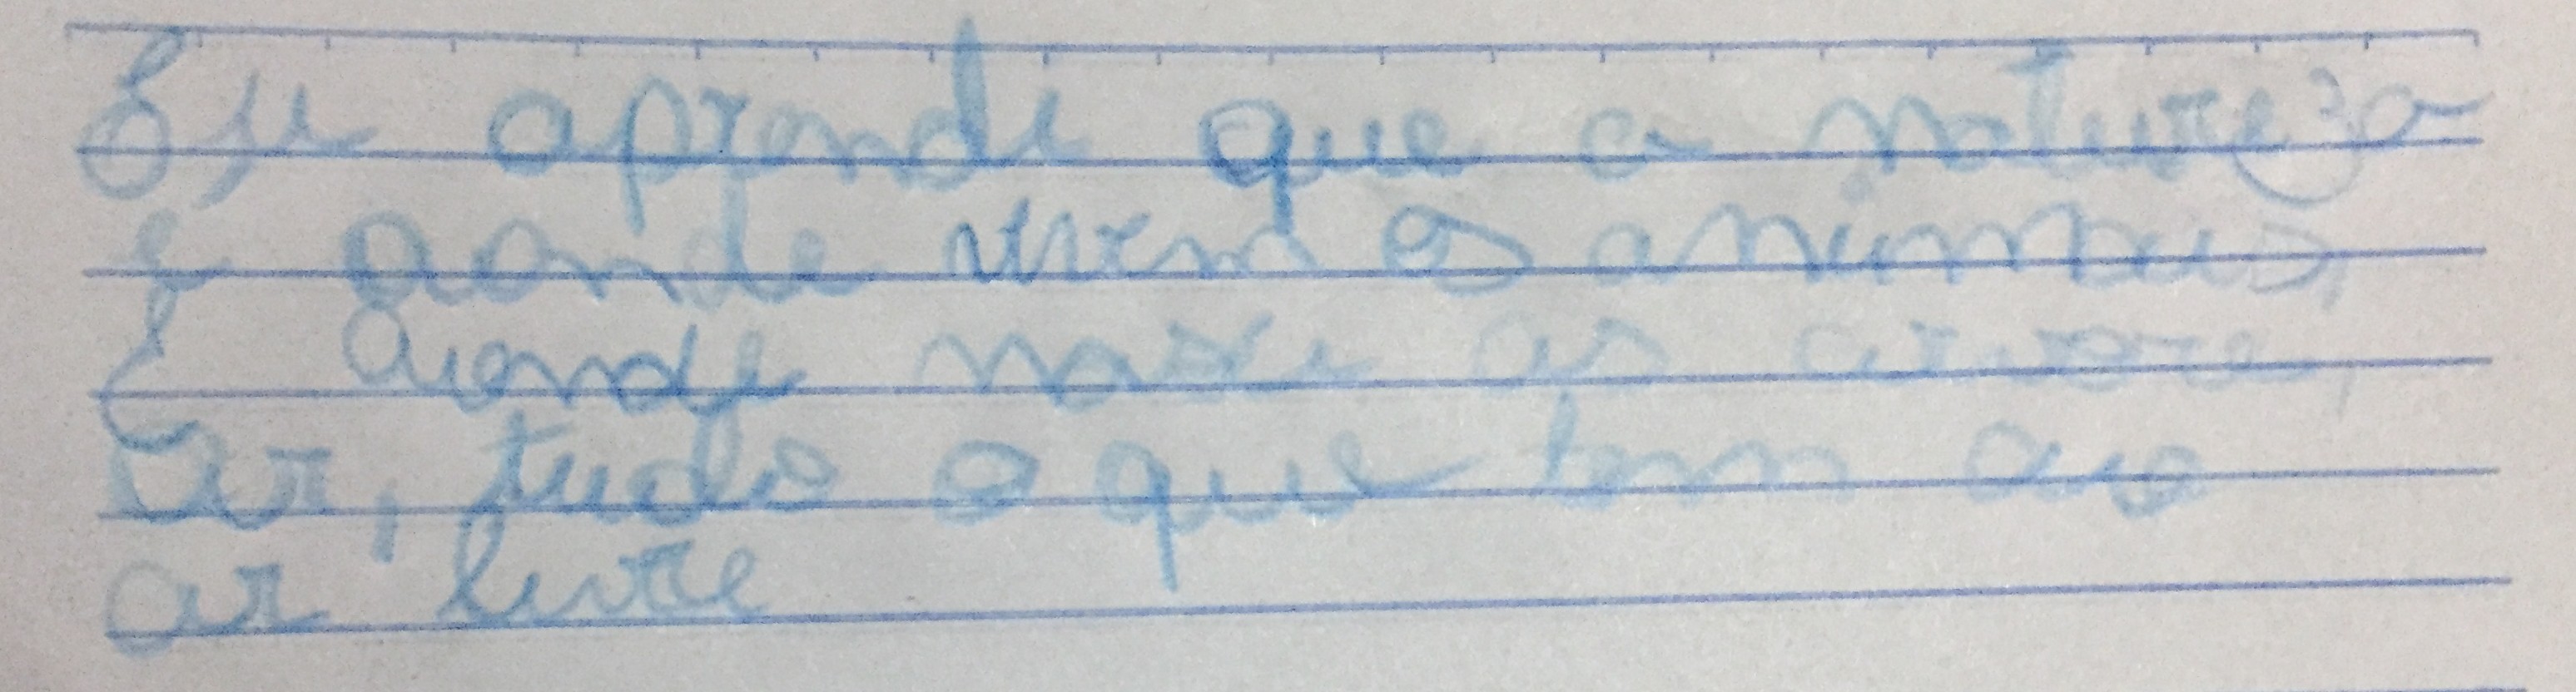 Eu aprendi que a natureza
é aonde vivem os animais,
é aonde nace as arvore,
ar, tudo o que tem ao
ar livre